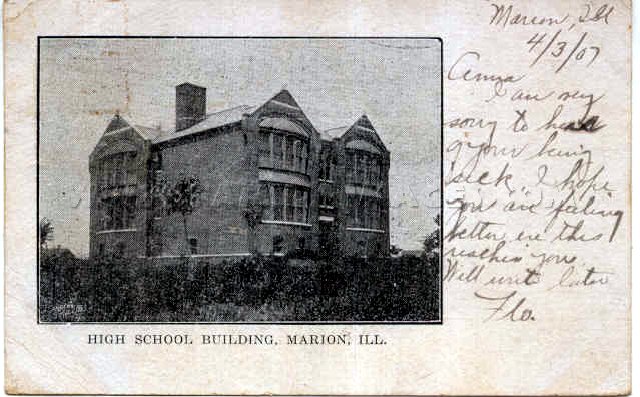 Marion, Ill
4/3/07
Anna
I am very
sorry to hear
of your being
sick, I hope
you are feeling
better ere this
reaches you.
Will write later
Flo.
HIGH SCHOOL BUILDING, MARION, ILL.